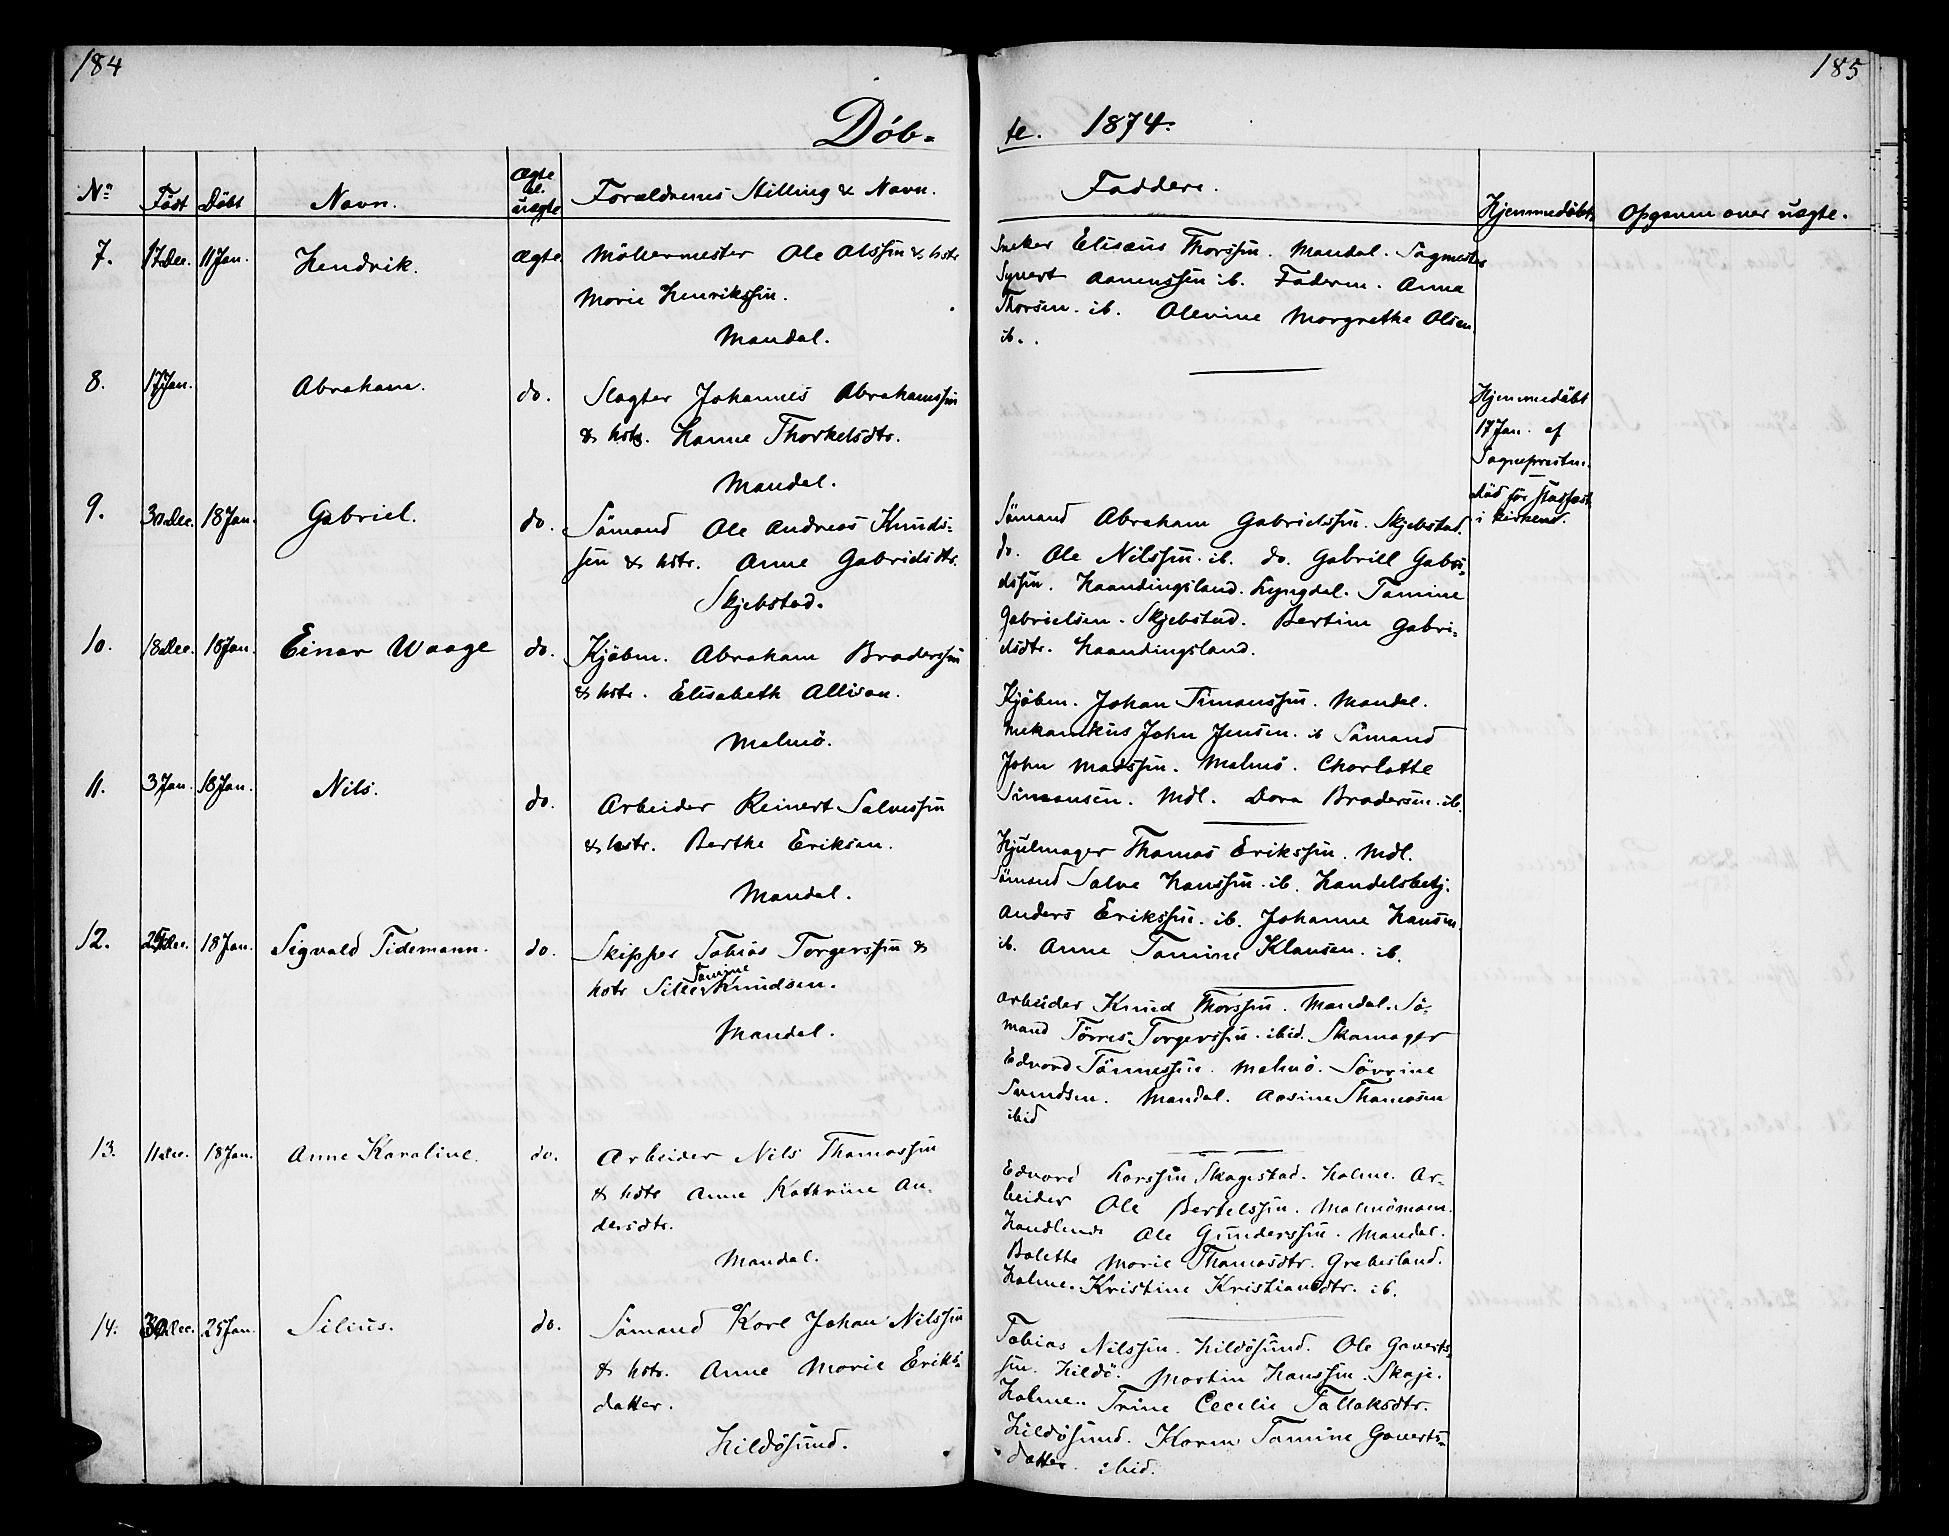 184
185
Döb-
te. 1874.
No
Födt
Döbt
Navn.
Ægte
el.
uægte
Forældrenes Stilling & Navn.
Faddere.
Hjemmedöbt
Opgavm over uægte.
7. 17 Dec. 11 Jan. Hendrik. ægte
Möllermester Ole Olssen & hstr
Marie Henrikssen.
Mandal.
Elisæus Thorssen. Mandal. Sagmester
Synert Aanenssen ib. Faderen. Anna
Thorsen. ib. Olevine Margrethe Olsen
ib.
8. 17 Jan. Abraham. do.
Slagter Johannes Abrahamssen
& hstr. Hanne Thorkelsdtr.
Mandal.
Hjemmedöbt
17 Jan. af
Sognepresten.
död för Stadfæst.
i kirken.
9. 30 Dec. 18 Jan. Gabriel. do.
Sömand Ole Andreas Knuds-
sen & hstr. Anne Gabrielsdtr.
Skjebstad.
Sömand Abraham Gabrielssen. Skjebstad.
do. Ole Nilssen. ib. do. Gabriel Gabri-
elssen. Haandingsland. Lyngdal. Tamine
Gabrielsen. Skjebstad. Bertine Gabri-
elsdtr. Haandingsland.
10. 18 Dec. 18 Jan. Einar Waage do.
Kjöbm. Abraham Broderssen
& hstr. Elisabeth Allison.
Malmö.
Kjöbm. Johan Simonssen. Mandal.
Mekanikus John Jensen. ib Sömand
John Madssen. Malmö. Charlotte
Simonsen. Mdl. Dora Brodersen. ib.
11. 3 Jan. 18 Jan. Nils. do.
Arbeider Reinert Salvessen
& hstr. Berthe Eriksen.
Mandal.
Hjulmager Thomas Erikssen. Mdl.
Sömand Salve Hanssen. ib. Handelsbetj.
Anders Erikssen. ib. Johanne Hansen
ib. Anne Tamine Klausen. ib.
12. Dec. 18 Jan. Sigvald Tidemann. do.
Skipper Tobias Torgerssen &
Tamine
hstr Knudsen.
Mandal.
Arbeider Knud Thorssen. Mandal. Sö-
mand Törres Torgerssen. ibid. Skomager
Edvard Tönnessen. Malmö. Sövrine
Svendsen. Mandal. Aasine Thomasen
ibid
13. 11 Dec. 18 Jan. Anne Karoline. do.
Arbeider Nils Thomassen
& hstr Anne Kathrine An-
dersdtr.
Mandal.
Edvard Larssen Skagestad. Holme. Ar-
beider Ole Bertelssen. Malmömoen.
Handlende Ole Gunderssen. Mandal.
Bolette Marie Thomasdtr. Grebesland.
Holme. Kristine Kristiansdtr. ib.
14. 30 Dec. 25 Jan. Silius. do.
Sömand Karl Johan Nilssen
& hstr. Anne Marie Eriks-
datter.
Hildösund.
Tobias Nilssen. Hildösund. Ole Goverts-
sen. Hildö. Martin Hanssen. Skoje.
Holme. Trine Cecelie Tallaksdtr.
Hildösund. Karen Tomine Goverts-
datter. ibid.